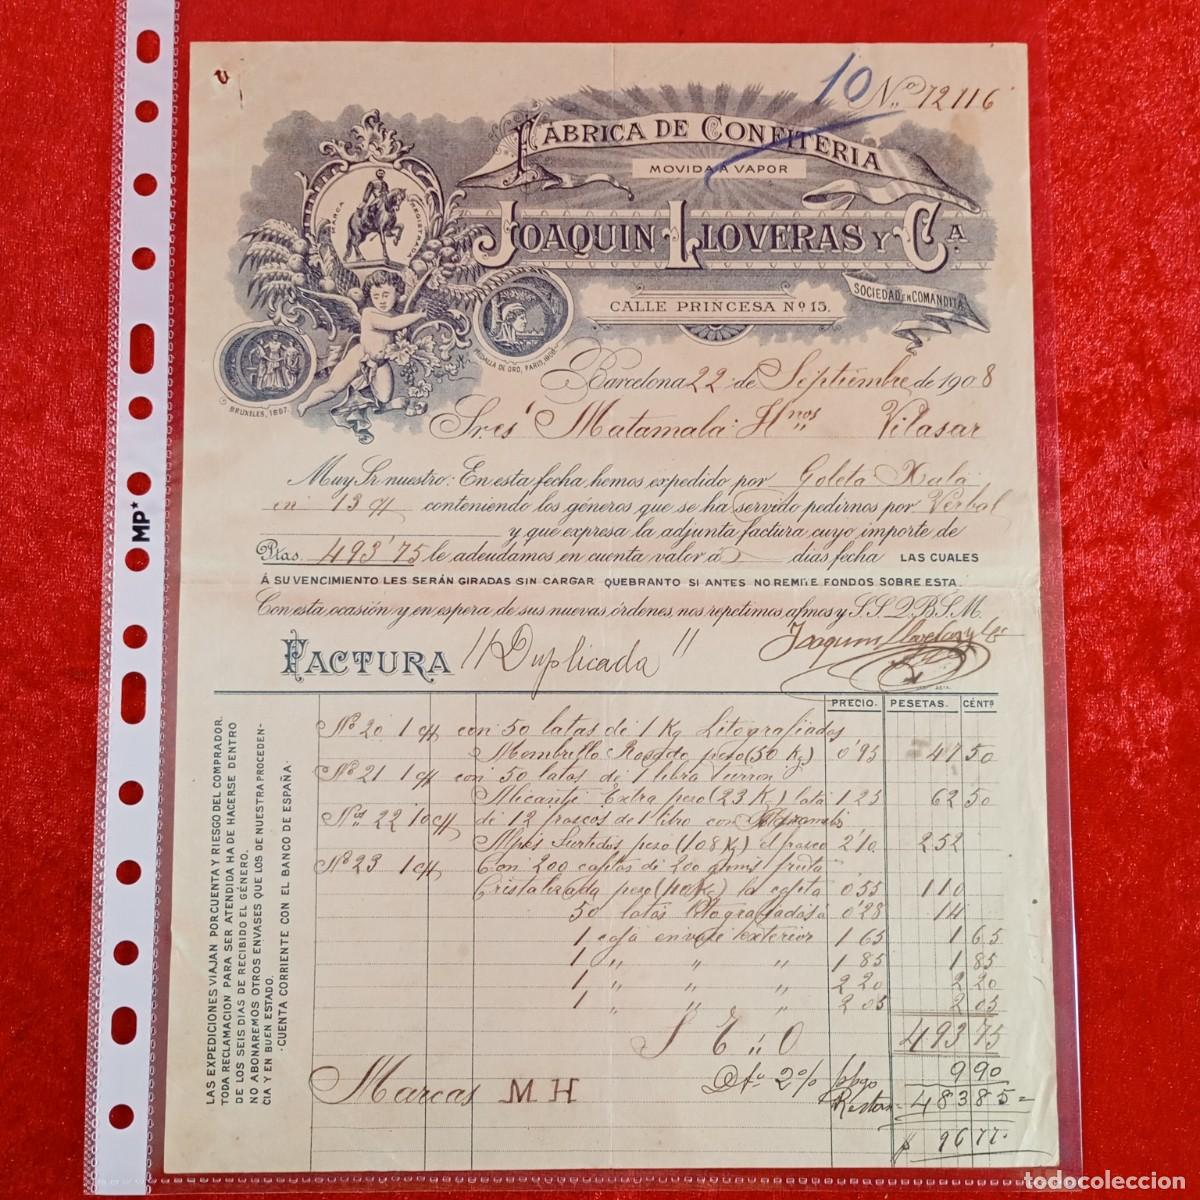 10 Nº 72116
FÁBRICA DE CONFITERIA
MOVIDA A VAPOR
JOAQUIN LLOVERAS Y Cª
SOCIEDAD EN COMANDITA
CALLE PRINCESA Nº 15.
MARCA REGISTRADA
MEDALLA DE ORO, PARIS, 1906
BRUXELES, 1897.
Barcelona 22 de Septiembre de 1908
Sres Matamala Hnos Vilasar
Muy Sr nuestro: En esta fecha hemos expedido por Goleta
en 13 c/ conteniendo los géneros que se ha servido pedirnos por Verbal
y que expresa la adjunta factura cuyo importe de
Ptas. 493'75 le adeudamos en cuenta valor á días fecha LAS CUALES
Á SU VENCIMIENTO LES SERÁN GIRADAS SIN CARGAR QUEBRANTO SI ANTES NO REMITE FONDOS SOBRE ESTA.
Con esta ocasión y en espera de sus nuevas órdenes, nos repetimos afmos y S.S.Q.B.S.M.
FACTURA "Duplicada" Joaquin Lloveras y Ca
PRECIO. PESETAS. CÉNTº
Nº 20 1 c/ con 50 latas de 1 Kg Litografiados
Membrillo Rosado peso (50 Kg) 0'95 47 50
Nº 21 1 c/ con 50 latas de 1 libra turron
Alicante Extra peso (23 K) lata 1 25 62 50
Nos 22 10 c/ de 12 frascos de 1 libra con
surtidos peso (108 K) el frasco 2'10 252
Nº 23 1 c/ Con 200 cajitas de 200 fruta
Cristalizada peso (110 K) la cajita 0'55 110
50 latas litografiadas á 0'28 14
1 caja envase exterior 1 65 1 65
1 " " " 1 85 1 85
1 " " " 2 20 2 20
1 " " " 2 05 2 05
S. E. ú O 493 75
Dto 2% 9 90
Restan 483 85
96 77
Marcas M H
LAS EXPEDICIONES VIAJAN POR CUENTA Y RIESGO DEL COMPRADOR.
TODA RECLAMACIÓN PARA SER ATENDIDA HA DE HACERSE DENTRO
DE LOS SEIS DIAS DE RECIBIDO EL GÉNERO.
NO ABONAREMOS OTROS ENVASES QUE LOS DE NUESTRA PROCEDEN-
CIA Y EN BUEN ESTADO.
·CUENTA CORRIENTE CON EL BANCO DE ESPAÑA·
MP*
todocoleccion